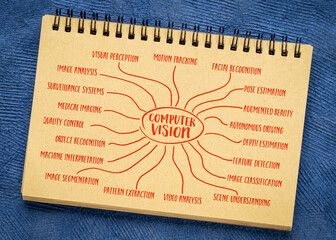 VISUAL PERCEPTION
MOTION TRACKING
FACIAL RECOGNITION
IMAGE ANALYSIS
POSE ESTIMATION
SURVEILLANCE SYSTEMS
AUGMENTED REALITY
MEDICAL IMAGING
COMPUTER
VISION
AUTONOMOUS DRIVING
QUALITY CONTROL
DEPTH ESTIMATION
OBJECT RECOGNITION
FEATURE DETECTION
MACHINE INTERPRETATION
IMAGE CLASSIFICATION
IMAGE SEGMENTATION
PATTERN EXTRACTION
VIDEO ANALYSIS
SCENE UNDERSTANDING